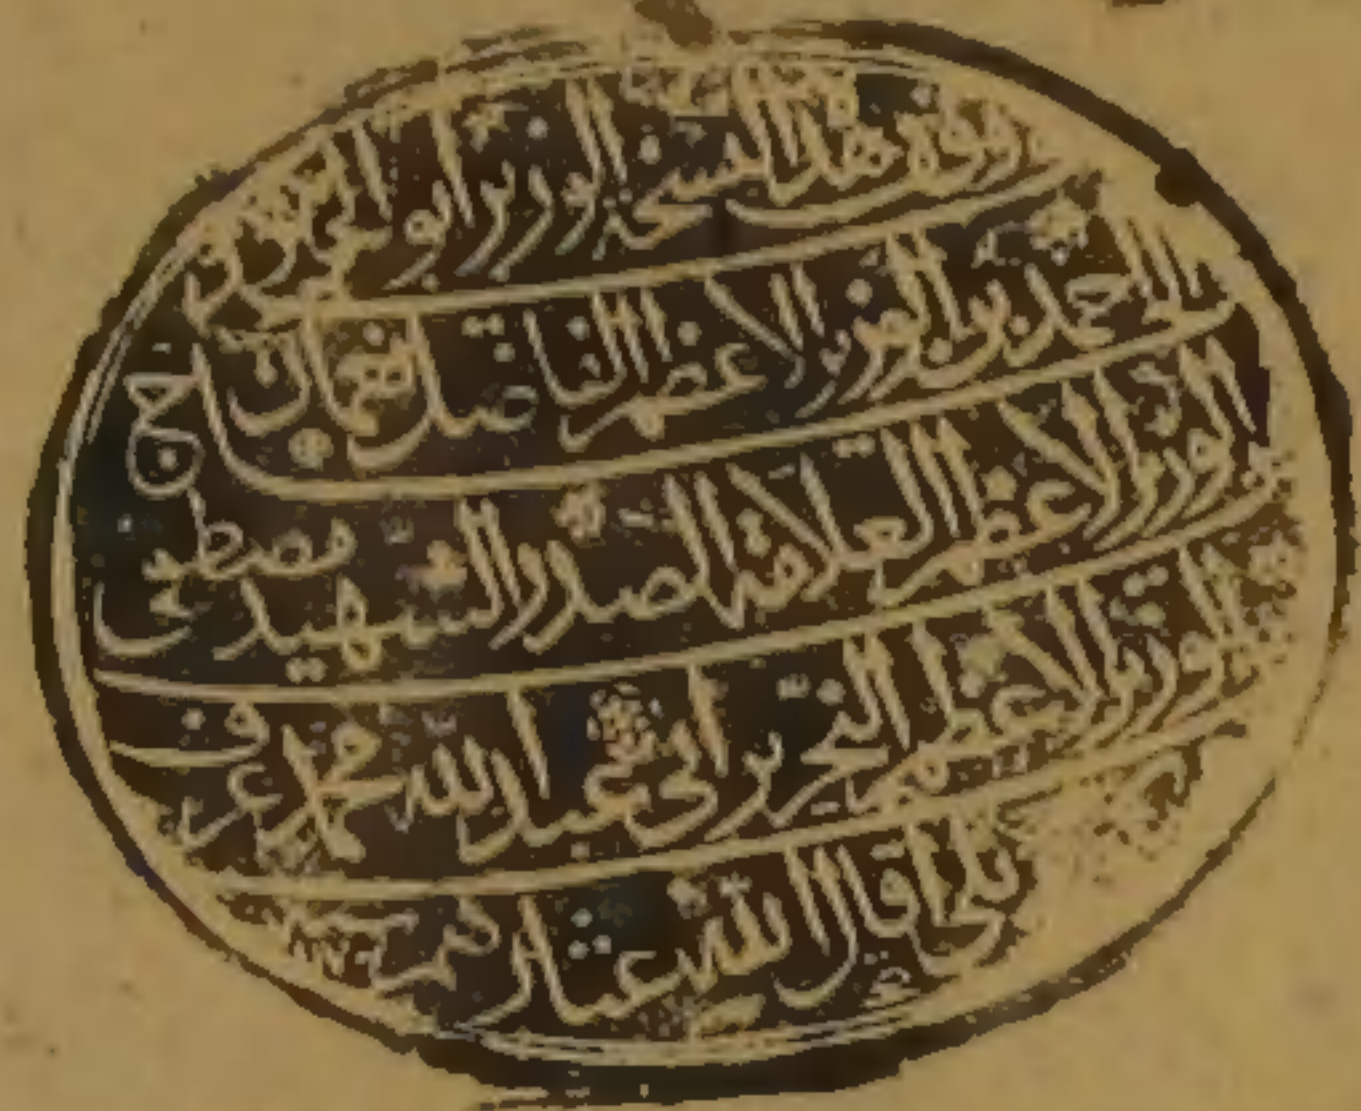 وقف هذه النسخة الوزير ابو
احمد بن الوزير الاعظم الفاضل نعمان
الوزير الاعظم العلامة الصدر الشهيد مصطفى
الوزير الاعظم النحرير ابى عبد الله محمد عرف
اقال الله عثارهم